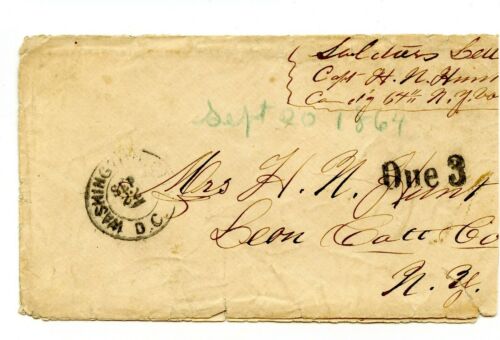 Soldiers Lett
Capt H. N. Hunt
Comd'g 64th N.Y. Vo
Sept 20 1864
WASHINGTON D.C.
SEP
Due 3
Mrs H. N. Hunt
Leon Catt Co
N.Y.